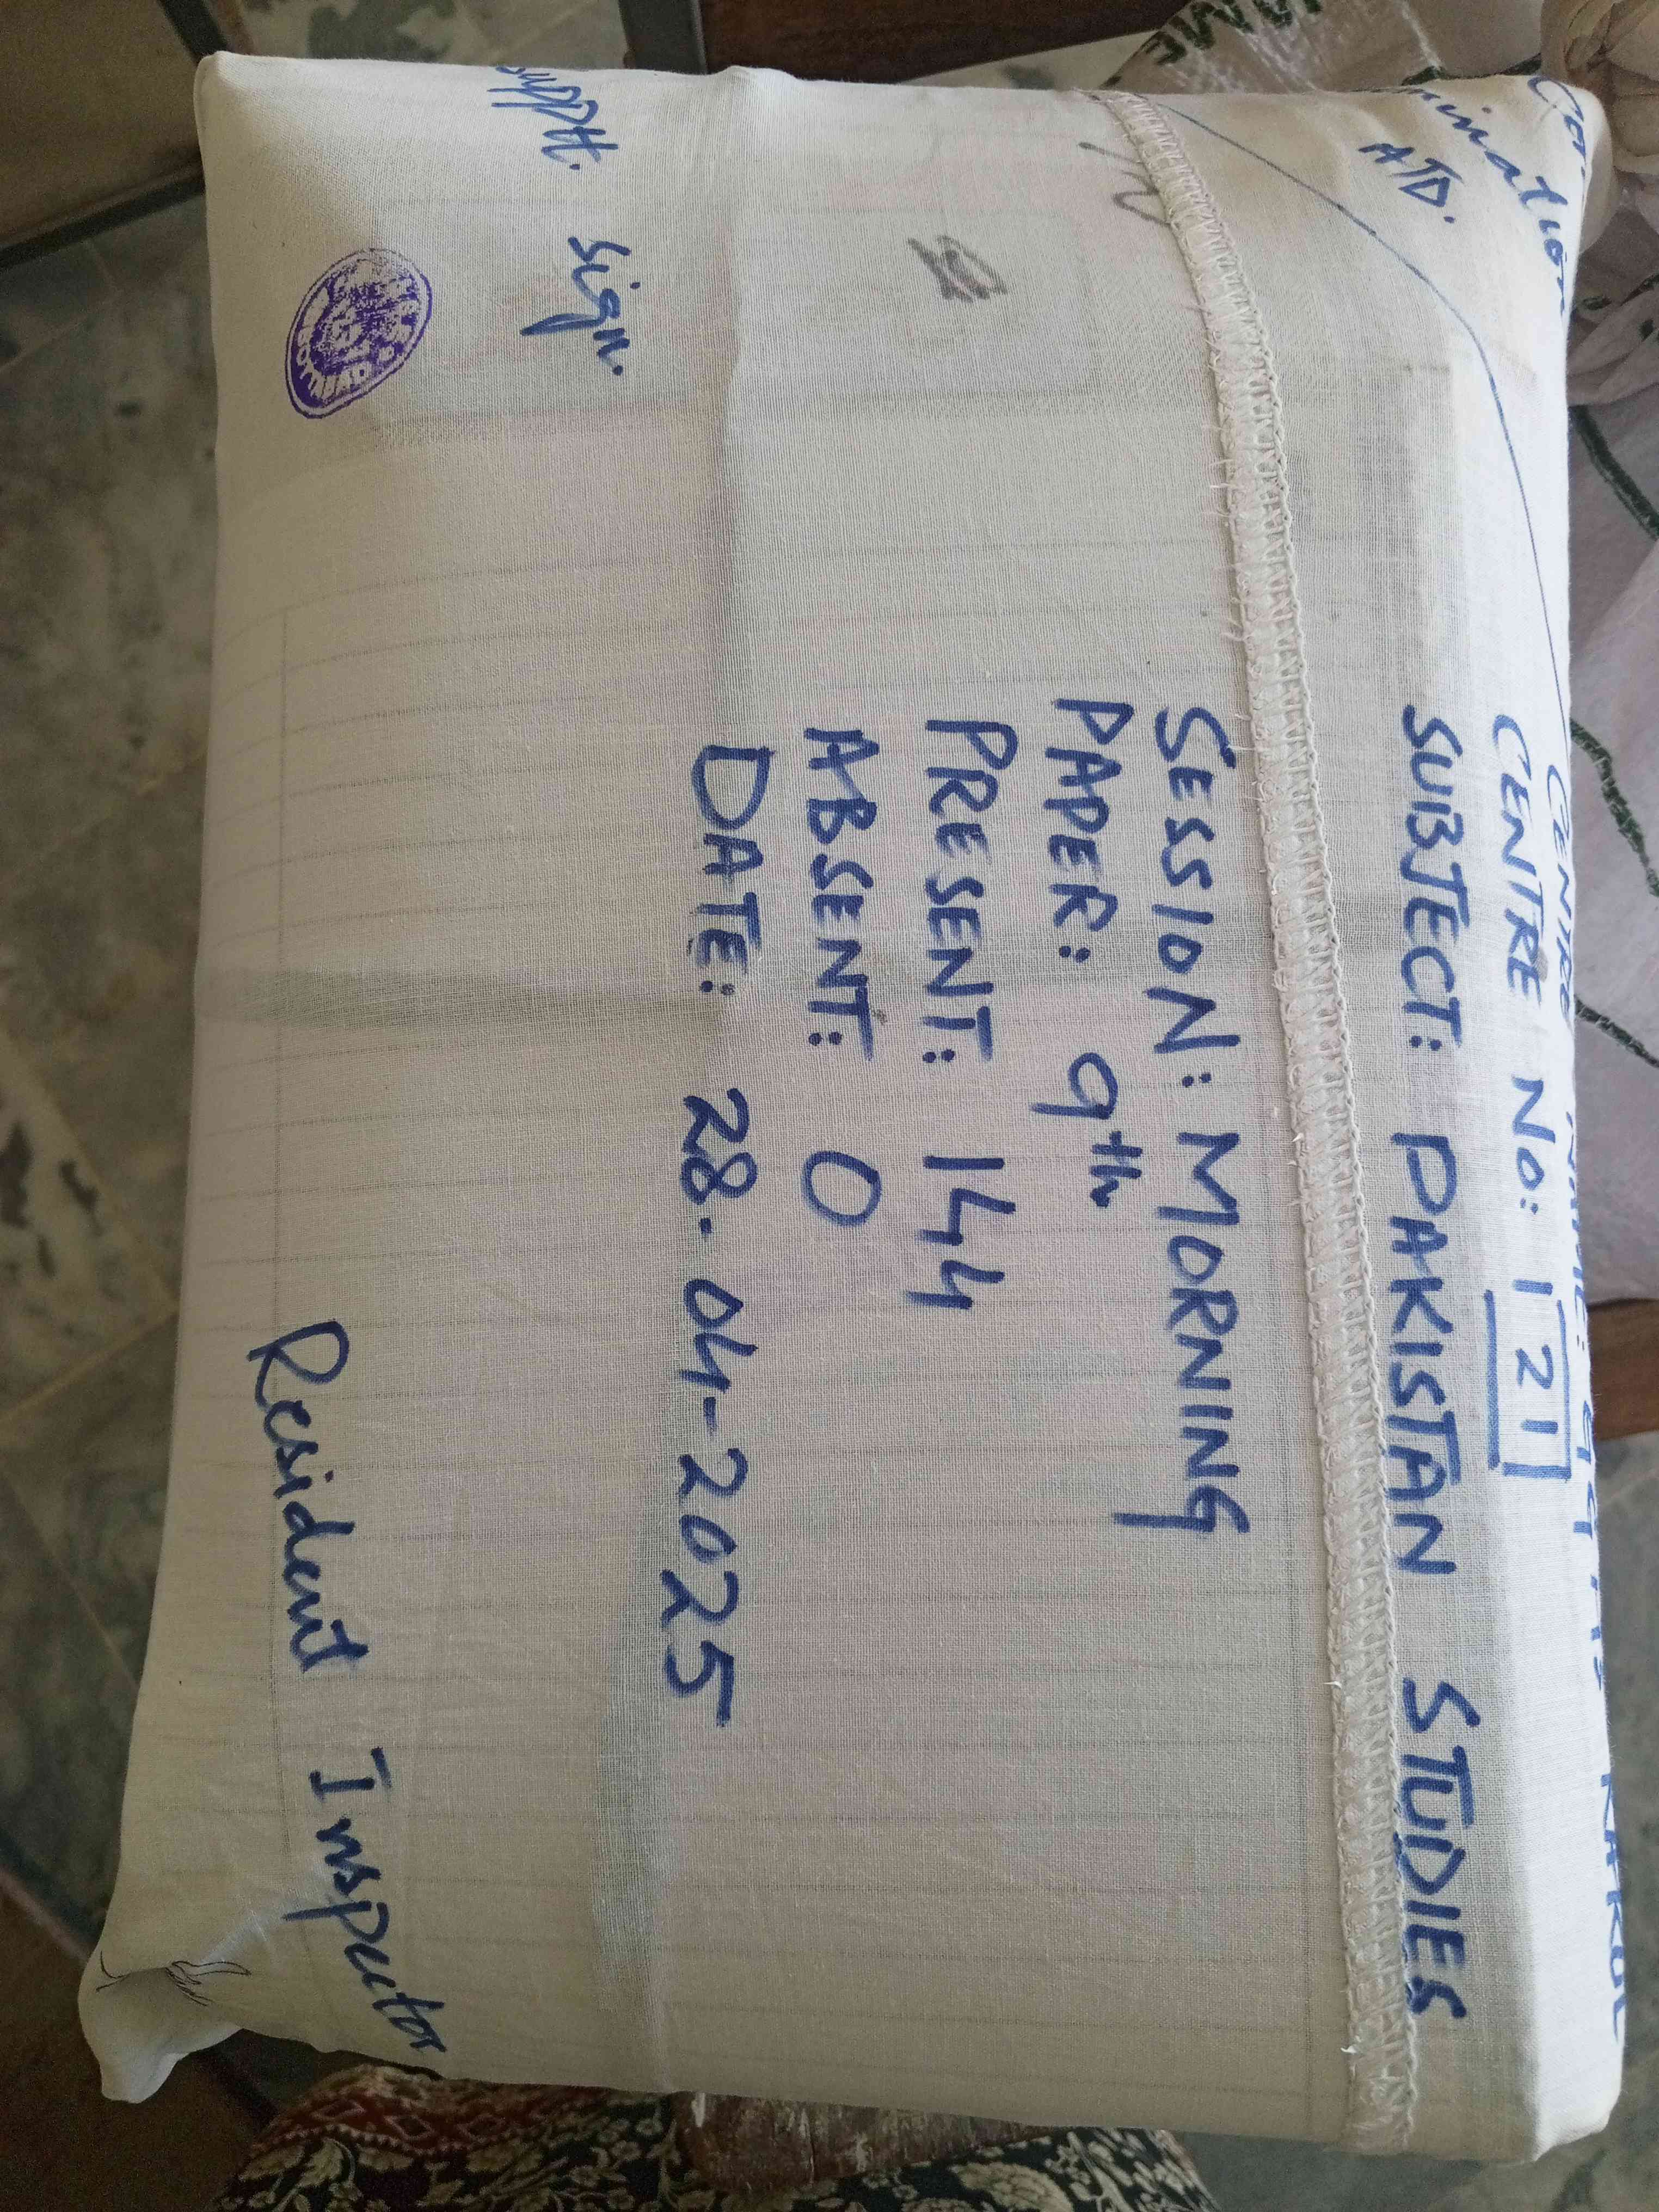 ATD.
CENTRE NAME: GGHS KAKUL
CENTRE NO: 121
SUBJECT: PAKISTAN STUDIES
SESSION: MORNING
PAPER: 9th
PRESENT: 144
ABSENT: 0
DATE: 28-04-2025
Suptt. Sign.
Resident Inspector